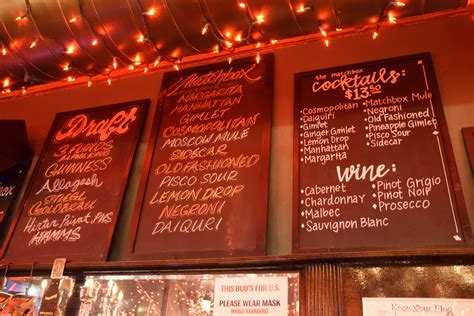 Draft
3 FLOYDS
GUINNESS
Allagash
STIEGL
GOLDBRAU
Hirter Privat Pils
HAMMS
Matchbox
MARGARITA
MANHATTAN
GIMLET
COSMOPOLITAN
MOSCOW MULE
SIDECAR
OLD FASHIONED
PISCO SOUR
LEMON DROP
NEGRONI
DAIQUIRI
the matchbox
cocktails:
$13.50
Cosmopolitan
Daiquiri
Gimlet
Ginger Gimlet
Lemon Drop
Manhattan
Margarita
Matchbox Mule
Negroni
Old Fashioned
Pineapple Gimlet
Pisco Sour
Sidecar
wine:
Cabernet
Chardonnay
Malbec
Sauvignon Blanc
Pinot Grigio
Pinot Noir
Prosecco
THIS BUD'S FOR U.S.
PLEASE WEAR MASK
WHILE STANDING
Know Your